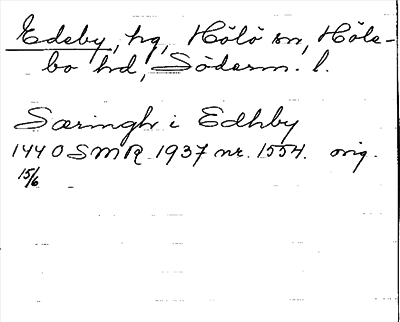 Edeby, hg, Hölö sn, Höle-
bo hd, Söderm. l.
Særingh i Edhby
1440 SMR 1937 nr. 1554. orig.
15/6